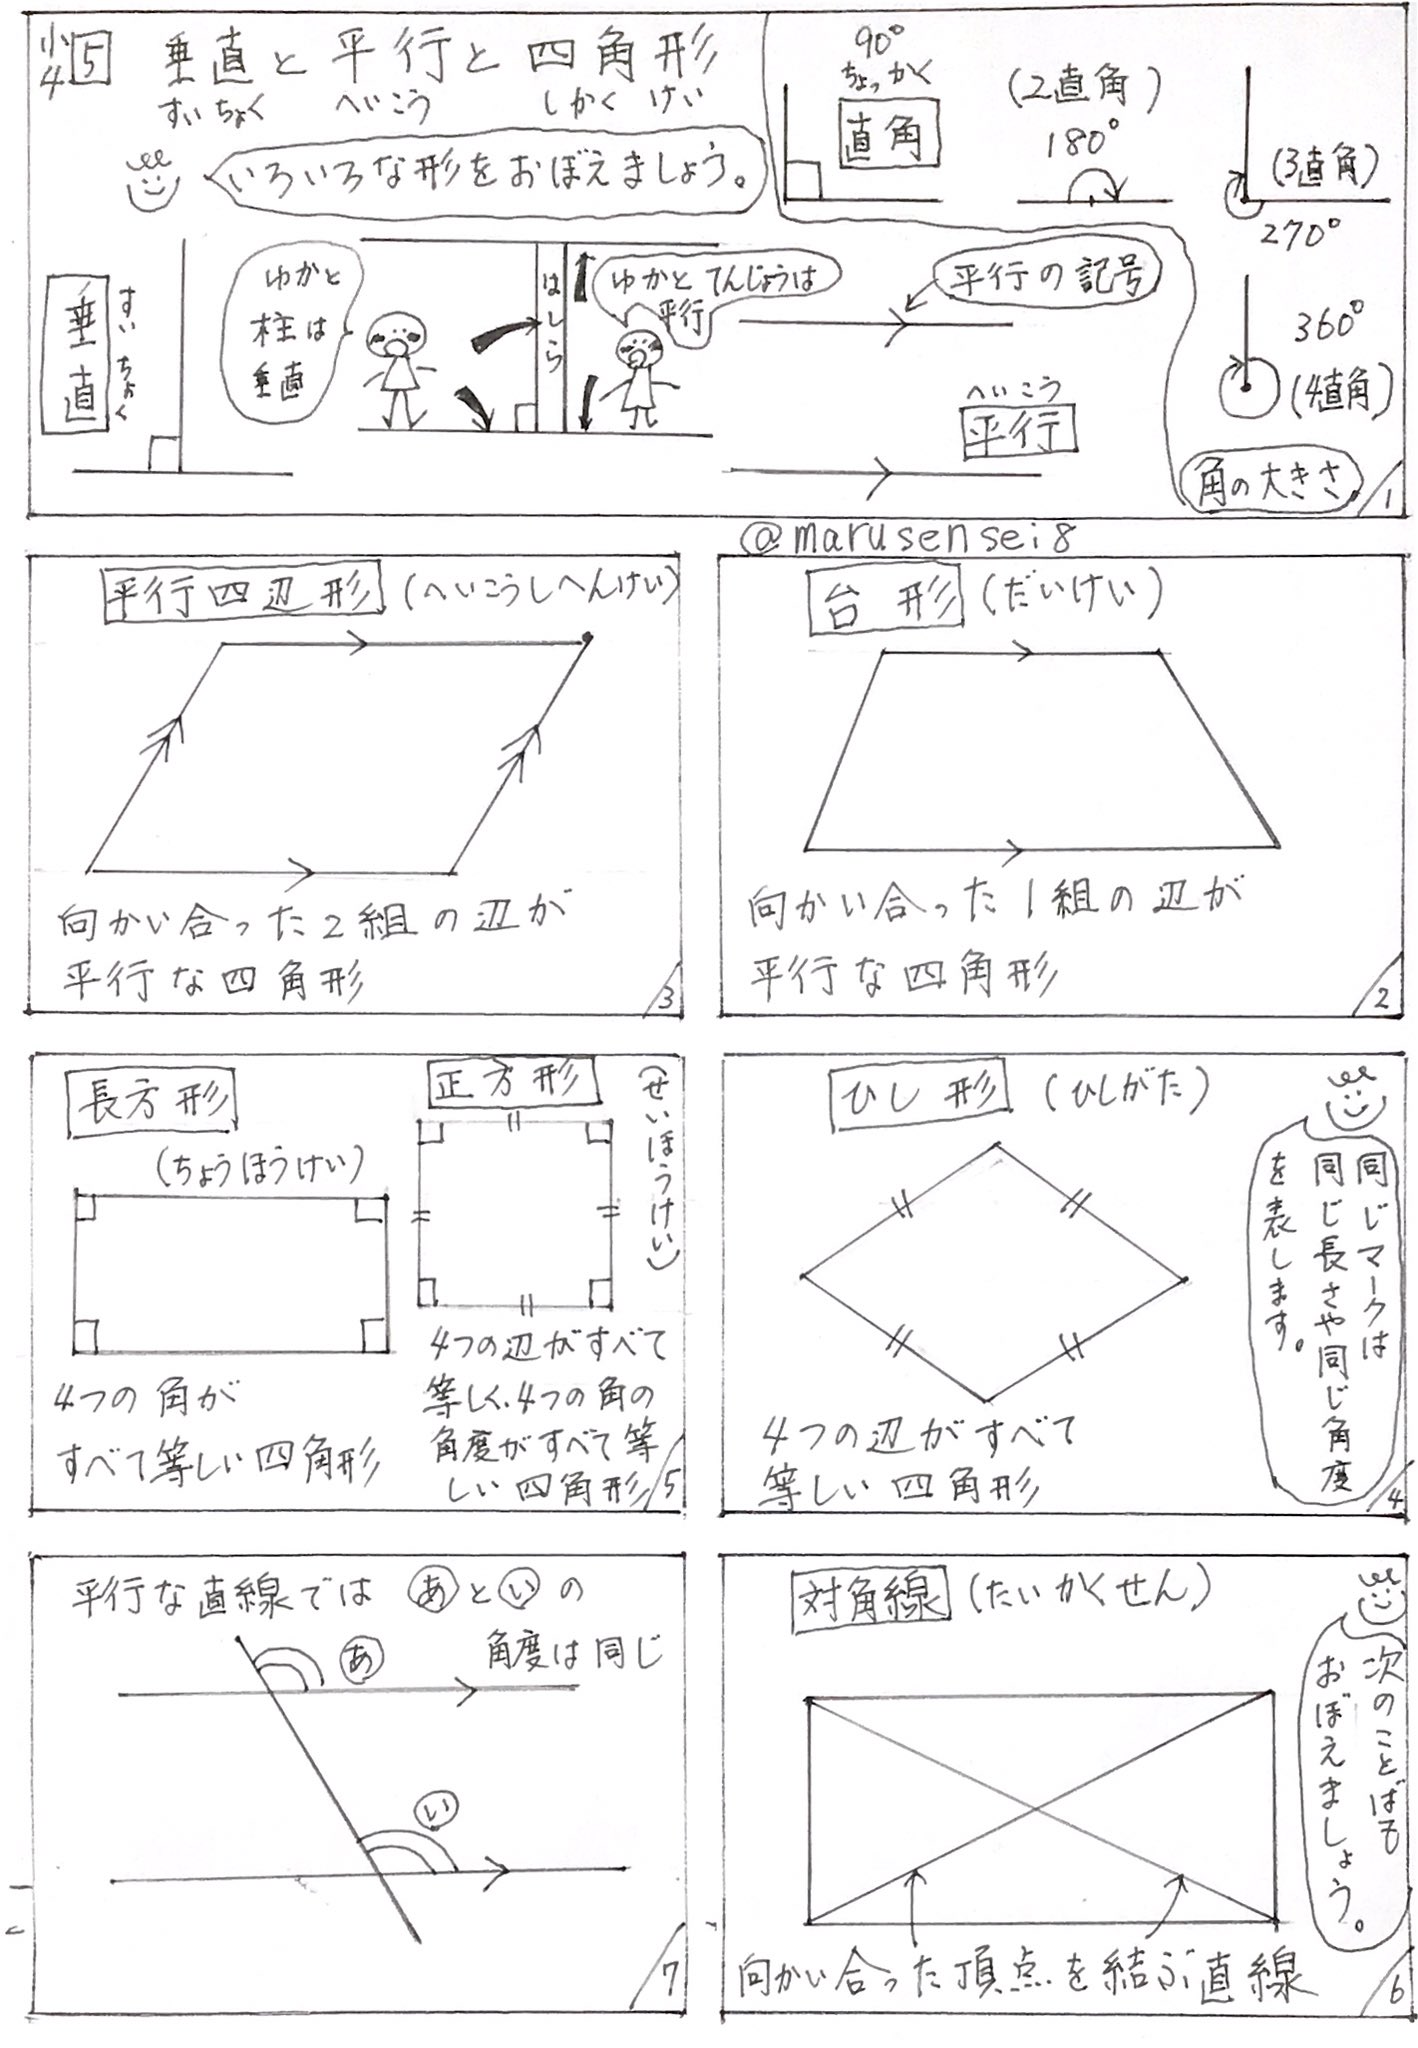 小4 5 垂直と平行と四角形
すいちょく へいこう しかくけい
いろいろな形をおぼえましょう。
90°
ちょっかく
直角
(2直角)
180°
(3直角)
270°
360°
(4直角)
角の大きさ
垂直
すいちょく
ゆかと
柱は
垂直
はしら
ゆかとてんじょうは
平行
平行の記号
へいこう
平行
1
@marusensei8
台形 (だいけい)
向かい合った1組の辺が
平行な四角形
2
平行四辺形 (へいこうしへんけい)
向かい合った2組の辺が
平行な四角形
3
ひし形 (ひしがた)
同じマークは
同じ長さや同じ角度
を表します。
4つの辺がすべて
等しい四角形
4
長方形
(ちょうほうけい)
4つの角が
すべて等しい四角形
正方形
(せいほうけい)
4つの辺がすべて
等しく、4つの角の
角度がすべて等
しい四角形
5
対角線 (たいかくせん)
次のことばも
おぼえましょう。
向かい合った頂点を結ぶ直線
6
平行な直線では あ と い の
角度は同じ
あ
い
7